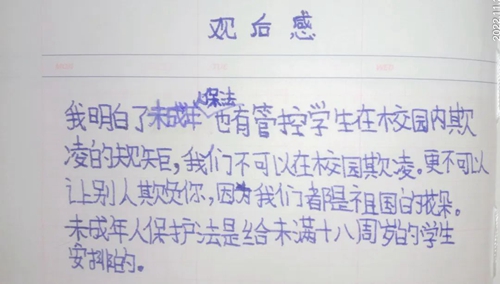 观后感
我明白了未成年人保法也有管控学生在校园内欺
凌的规矩，我们不可以在校园欺凌。更不可以
让别人欺负你，因为我们都是祖国的花朵。
未成年人保护法是给未满十八周岁的学生
安排的。